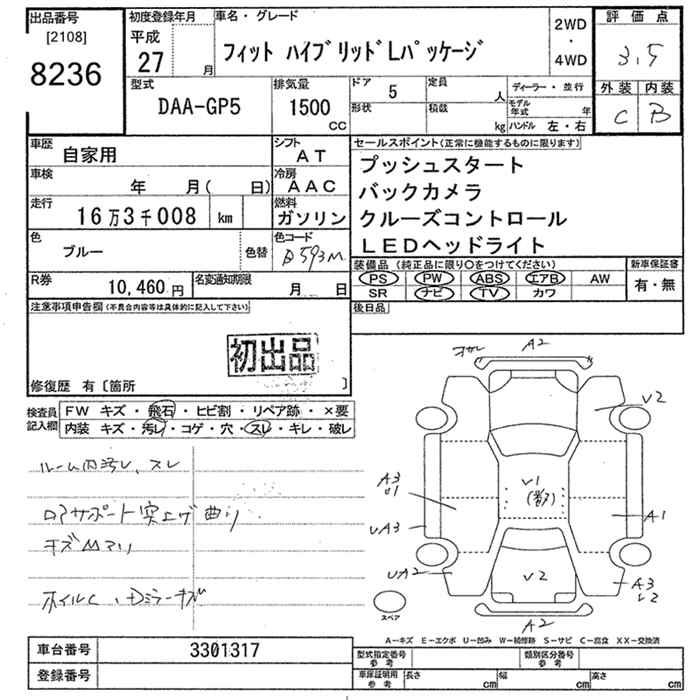 出品番号
[2108]
8236
初度登録年月
平成
27 月
車名・グレード
フィット ハイブリッドLパッケージ
2WD
・
4WD
評価点
3.5
外装 内装
C B
型式
DAA-GP5
排気量
1500
CC
ドア 5
形状
定員 人
積載 kg
ディーラー・並行
モデル年式 年
ハンドル 左・右
車歴
自家用
シフト
AT
車検
年 月( 日)
冷房
AAC
走行
16万3千008 km
燃料
ガソリン
色
ブルー
色替
色コード
B593M
R券
10,460円
名変通知期限
月 日
セールスポイント(正常に機能するものに限ります)
プッシュスタート
バックカメラ
クルーズコントロール
LEDヘッドライト
装備品(純正品に限り○をつけてください)
PS PW ABS エアB AW
SR ナビ TV カワ
新車保証書
有・無
後日品
注意事項申告欄(不具合内容等は具体的に記入して下さい)
初出品
修復歴 有〔箇所 〕
検査員
記入欄
FW キズ・飛石・ヒビ割・リペア跡・×要
内装 キズ・汚レ・コゲ・穴・スレ・キレ・破レ
ルーム内汚レ、スレ
ロアサポート突上げ曲り
キズUマリ
ホイルC、Dミラーキズ
A2
V2
V1
A3
U1
A1
UA3
UA2
V2
A3
V2
A2
スペア
A−キズ E−エクボ U−凹み W−補修跡 S−サビ C−腐食 XX−交換済
車台番号
3301317
登録番号
型式指定番号
参考
類別区分番号
参考
車庫証明用
参考
長さ cm
幅 cm
高さ cm